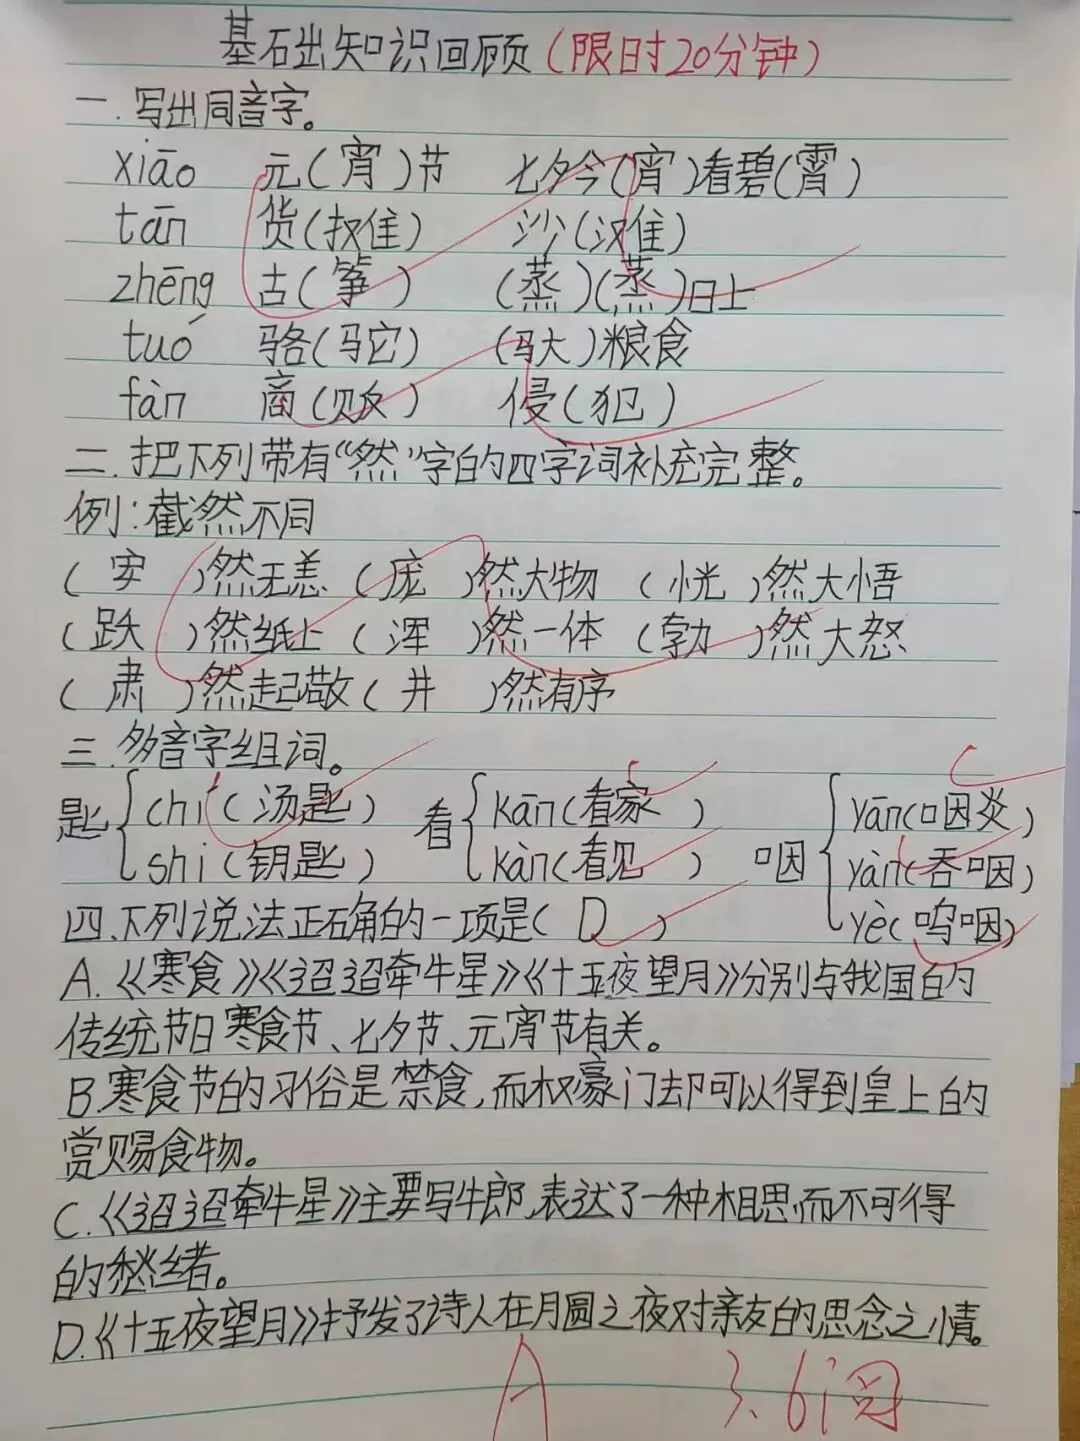 基础知识回顾(限时20分钟)
一.写出同音字。
xiāo 元(宵)节 七夕今(宵)看碧(霄)
tān 货(摊) 沙(滩)
zhēng 古(筝) (蒸)(蒸)日上
tuó 骆(驼) (驮)粮食
fàn 商(贩) 侵(犯)
二.把下列带有“然”字的四字词补充完整。
例:截然不同
(安)然无恙 (庞)然大物 (恍)然大悟
(跃)然纸上 (浑)然一体 (勃)然大怒
(肃)然起敬 (井)然有序
三.多音字组词。
匙 chi(汤匙) 看 kān(看家) 咽 yān(咽炎)
shi(钥匙) kàn(看见) yàn(吞咽)
yè(呜咽)
四、下列说法正确的一项是(D)
A.《寒食》《迢迢牵牛星》《十五夜望月》分别与我国的
传统节日寒食节、七夕节、元宵节有关。
B.寒食节的习俗是禁食,而权豪门却可以得到皇上的
赏赐食物。
C.《迢迢牵牛星》主要写牛郎,表达了一种相思而不可得
的愁绪。
D.《十五夜望月》抒发了诗人在月圆之夜对亲友的思念之情。
A 3.6阅